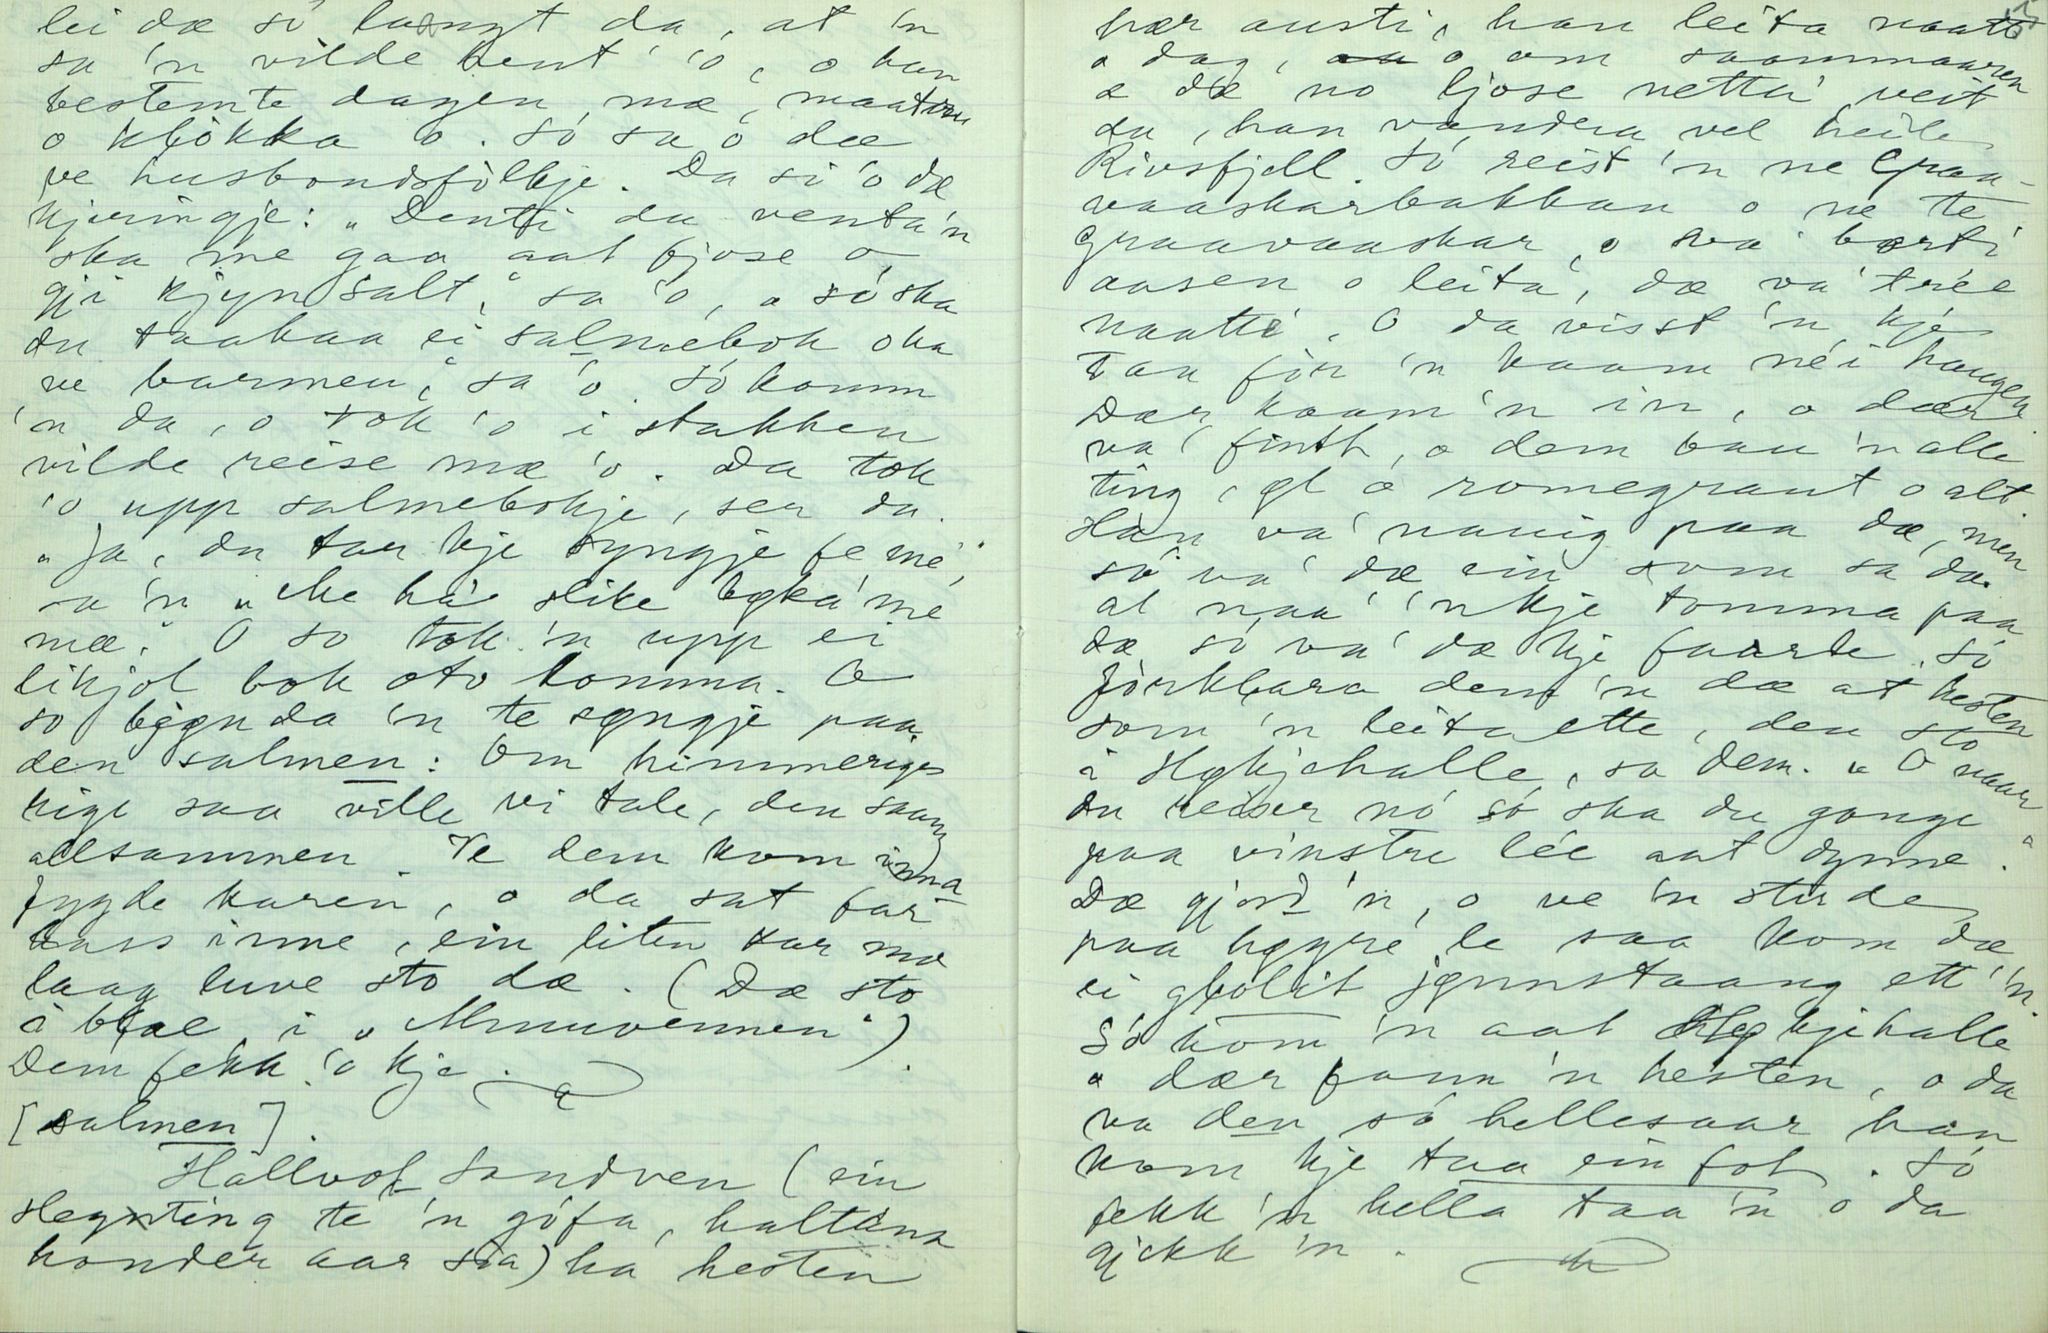 lei dæ só langt da, at 'n
sa 'n vilde hent' 'o, o han
bestemte dagen mæ, maaten
o klókka o. Só sa 'o dæ
ve husbondsfólkje. Da si 'o dæ
kjeringje: "Denti du venta 'n
ska me gaa aat fjose o
gji kjyn salt," sa 'o, "o só ska
du taabaa ei salmebok o ha
ve barmen," sa 'o. Só komm
'n da, o tok 'o i stakken
vilde reise mæ 'o. Da tok
'o upp salmebokje, ser du.
"Ja, du tar kje syngje fe me,"
sa 'n "Me há slike bøká me
mæ." O so tok 'n upp ei
likjol bok oto lomma. O
so bøgnda 'n te syngje paa
den salmen: Om himmeriges
rige saa ville vi tale, den saang
allsammen. Ve dem kom inna
fygde karen, o da sat far
hass inne, ein liten kar mæ
laag luve sto dæ. (Dæ sto
å blæ i "Mmuvennen").
Dem fekk 'o kje.
[salmen].
Hallvol Sandven (ein
slegting te 'n gófa, haltena
honder aar sia) ha hesten
hær austi, han leita naatt
o dag, o om saammaaren
æ dæ no ljose netta veit
du, han vandra vel heile
Rivsfjell. Só reist 'n ne Graa-
vaaskarbakkan o ne te
Graavaaskar, o sva' borti
aasen o leita', dæ va' trée
naatti. O da visst 'n kje
Taa fór 'n kaam né i haugen.
Dær kaam 'n in, o dær
va' fint, o dem bau 'n alle
ting, øl o rømegraut o alt.
Han va' nauig paa dæ, men
só va' dæ ein som sa da
at naa' 'n kje tomma paa
dæ só va' dæ kje faarle. Só
fórklara dem 'n dæ at hesten
som 'n leita ette, den sto
i Høkjehalle, sa dem. "O naar
du reiser nó só ska du gange
paa vinstre lée aat dynne."
Dæ gjord 'n, o ve 'n stude
paa høgre le saa kom dæ
ei gloheit jønnstaang ett 'n.
Só kom 'n aat Høkjehalle
o dær fann 'n hesten, o da
va den só hellesaar han
kom kje taa ein fot. Só
fekk 'n hella taa 'n o da
gjekk 'n.